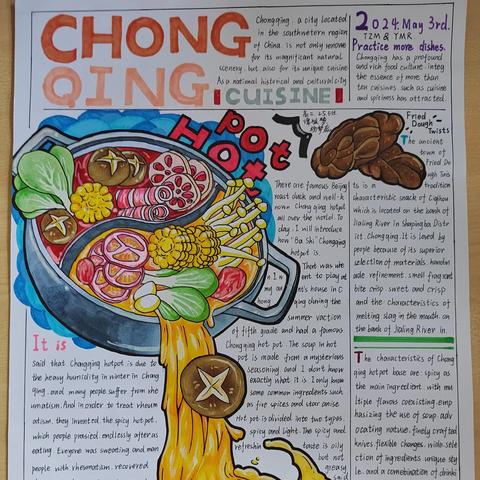 CHONG
QING
CUISINE
Chongqing, a city located
in the southwestern region
of China, is not only renow
for its magnificent natural
scenery, but also for its unique cuisine
As a national historical and cultural city
2024. May 3rd.
TZM & YMR.
Practice more dishes.
Chongqing has a profound
and rich food culture, integ
the essence of more than
ten cuisines, such as cuisine
and spiciness has attracted.
Hot pot
Fried
Dough
Twists
The ancient
town of
Fried Do
ugh Twis
ts is a tradition
characteristic snack of Ciqikou
which is located on the bank of
Jialing River in Shapingba Dist
rict, Chongqing. It is loved by
people because of its superior
selection of materials, handm
ade refinement, smell fragrant
bite crisp sweet and crisp
and the characteristics of
melting slag in the mouth, on
the bank of Jialing River in
There are famous Beijing
roast duck and well-k
nown Chongqing hotpot
all over the world. To
day, I will introduce
"Ba Shi" Chongqing
hotpot is.
There was
ent to play at
nt's house in C
hong qing during the
summer vacation
of fifth grade and had a famous
Chongqing hot pot. The soup in hot
pot is made from a mysterious
seasoning, and I don't know
exactly what it is. I only know
some common ingredients such
as five spices and star anise.
Hot pot is divided into two types,
spicy and light. The spicy and
refreshin taste is oily
but not
greasy
said
It is
said that Chongqing hotpot is due to
the heavy humidity in winter in Chong
qing, and many people suffer from rhe
umatism. And in order to treat rheum
atism, they invented the spicy hot pot,
which people praised endlessly after
eating. Everyone was sweating and man
people with rheumatism recovered
The characteristics of Chong
qing hotpot base are: spicy as
the main ingredient, with mu
ltiple flavors coexisting, emp
hasizing the use of soup, adv
ocating nature, finely crafted
knives, flexible changes, wide selec
tion of ingredients, unique sty
le, and a combination of drinki